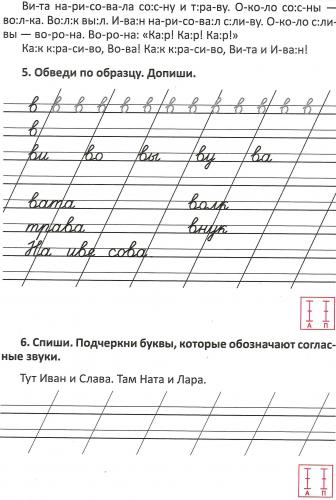 Ви-та на-ри-со-ва-ла со:с-ну и т:ра-ву. О-ко-ло со:с-ны —
во:л-ка. Во:л:к вы:л. И-ва:н на-ри-со-ва:л с:ли-ву. О-ко-ло с:ли-
вы — во-ро-на. Во-ро-на: «Ка:р! Ка:р! Ка:р!»
Ка:к к:ра-си-во, Во-ва! Ка:к к:ра-си-во, Ви-та и И-ва:н!
5. Обведи по образцу. Допиши.
в в в в в в в в в в в в в в в
в
ви во вы ву ва
вата волк
трава внук
На иве сова.
А П
6. Спиши. Подчеркни буквы, которые обозначают соглас-
ные звуки.
Тут Иван и Слава. Там Ната и Лара.
А П